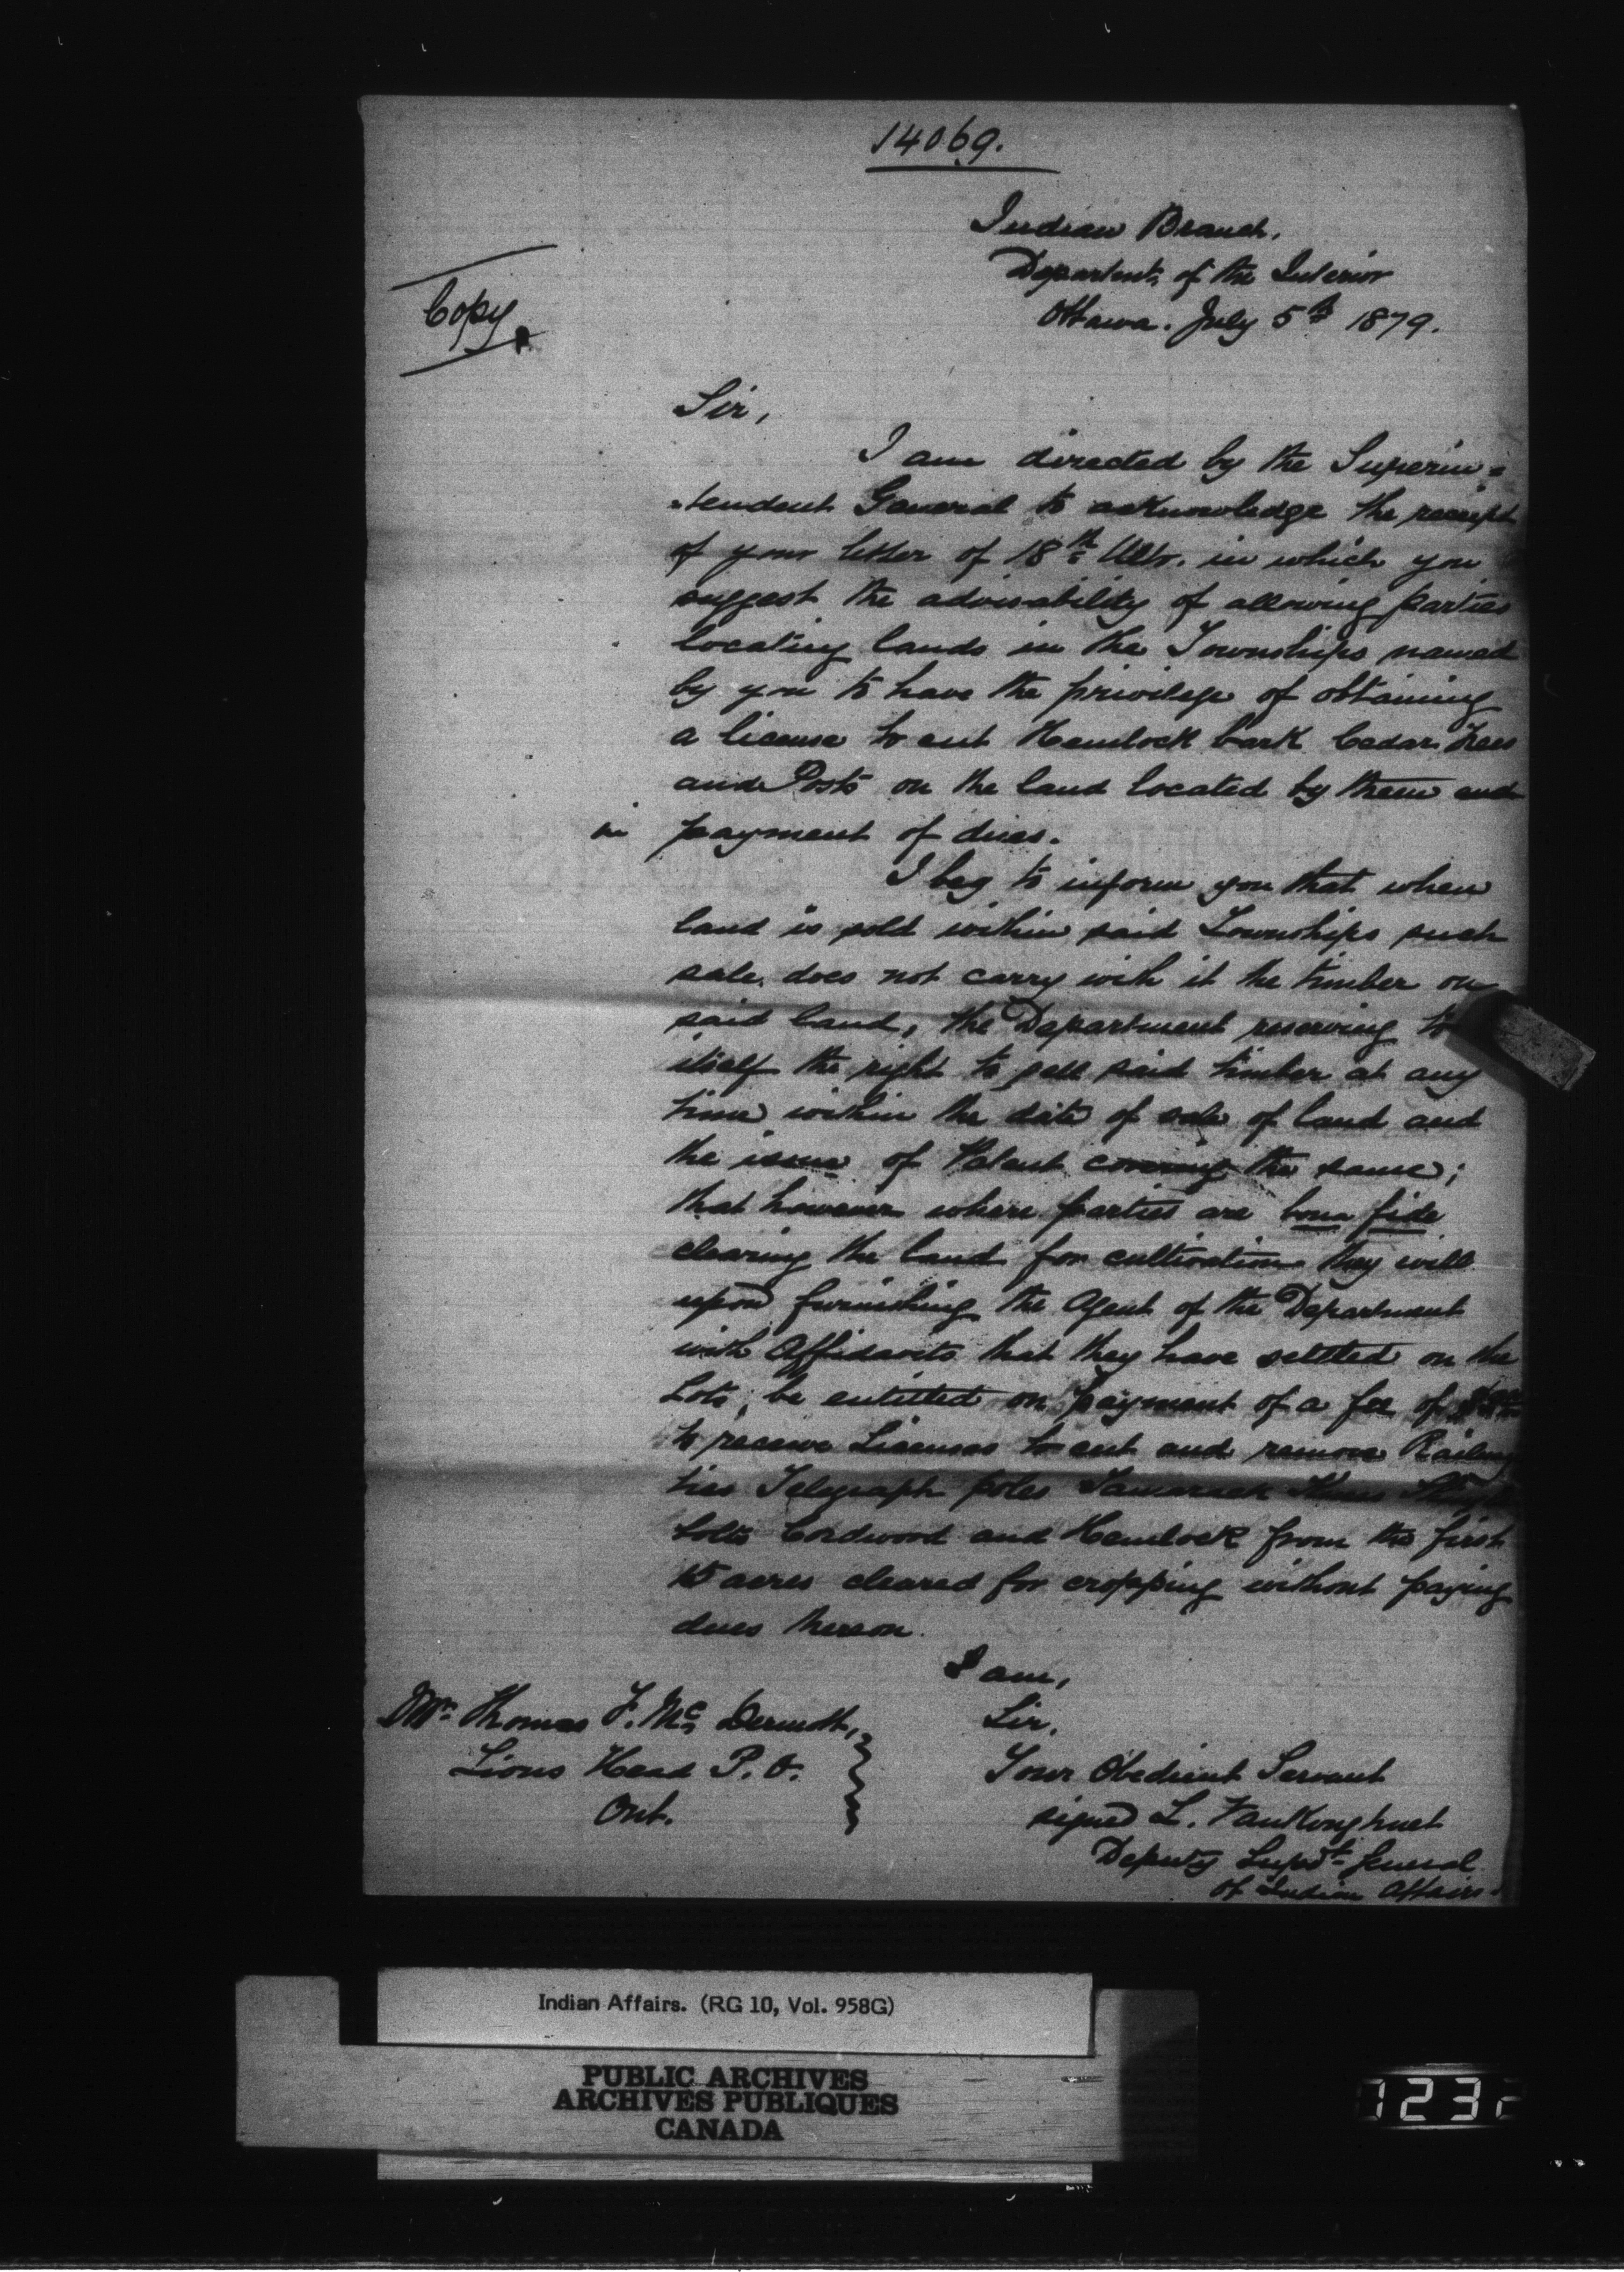 14069.
Indian Branch,
Departmt. of the Interior
Ottawa. July 5th 1879.
Copy
Sir,
I am directed by the Superin=
=tendent General to acknowledge the receipt
of your letter of 18th Ulto. in which you
suggest the advisability of allowing parties
locating lands in the Townships named
by you to have the privilege of obtaining
a license to cut Hemlock bark Cedar Trees
and Posts on the land located by them and
in payment of dues.
I beg to inform you that when
land is sold within said Townships such
sale does not carry with it the timber on
said land, the Department reserving to
itself the right to sell said timber at any
time within the date of sale of land and
the issue of Patent covering the same;
that however where parties are bona fide
clearing the land for cultivation they will
upon furnishing the Agent of the Department
with Affidavits that they have settled on the
Lots, be entitled on payment of a fee of
to receive Licenses to cut and remove Railway
ties Telegraph poles Tamarack Knees Shingle
bolts Cordwood and Hemlock from the first
15 acres cleared for cropping without paying
dues thereon.
I am,
Sir,
Your Obedient Servant
signed L. VanKoughnet
Deputy Supdt. General
of Indian Affairs.
Mr. Thomas F. Mc Dermott,
Lions Head P.O.
Ont.
Indian Affairs. (RG 10, Vol. 958G)
PUBLIC ARCHIVES
ARCHIVES PUBLIQUES
CANADA